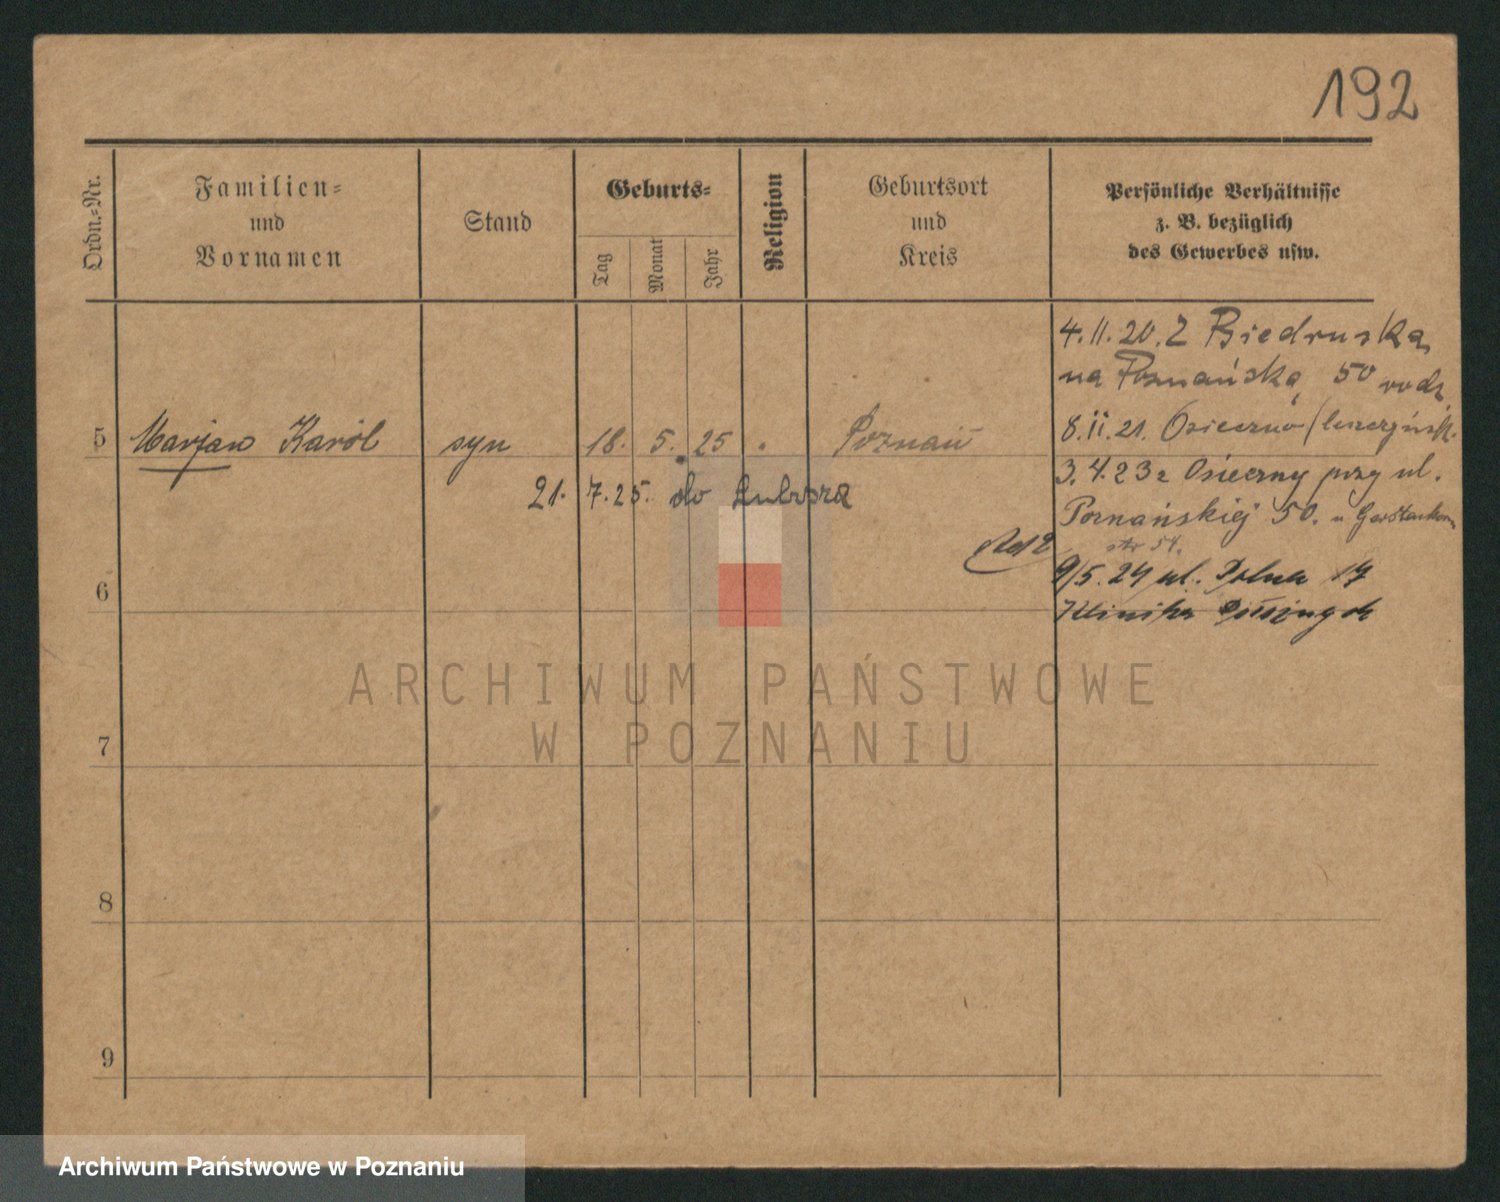 192
Ordn.-Nr.
Familien-
und
Vornamen
Stand
Geburts-
Tag
Monat
Jahr
Religion
Geburtsort
und
Kreis
Persönliche Verhältnisse
z. B. bezüglich
des Gewerbes usw.
4.11.20. Z Biedruska
na Poznańską 50 rodz.
5 Marjan Karol syn 18. 5. 25 Poznań
8.11.21. Osieczno
21. 7.25. do
3.4.23 z Osieczny przy ul.
Poznańskiej 50. u
str 54.
9/5.24 ul. Polna 17
6
Klinika
ARCHIWUM PAŃSTWOWE
W POZNANIU
7
8
9
Archiwum Państwowe w Poznaniu